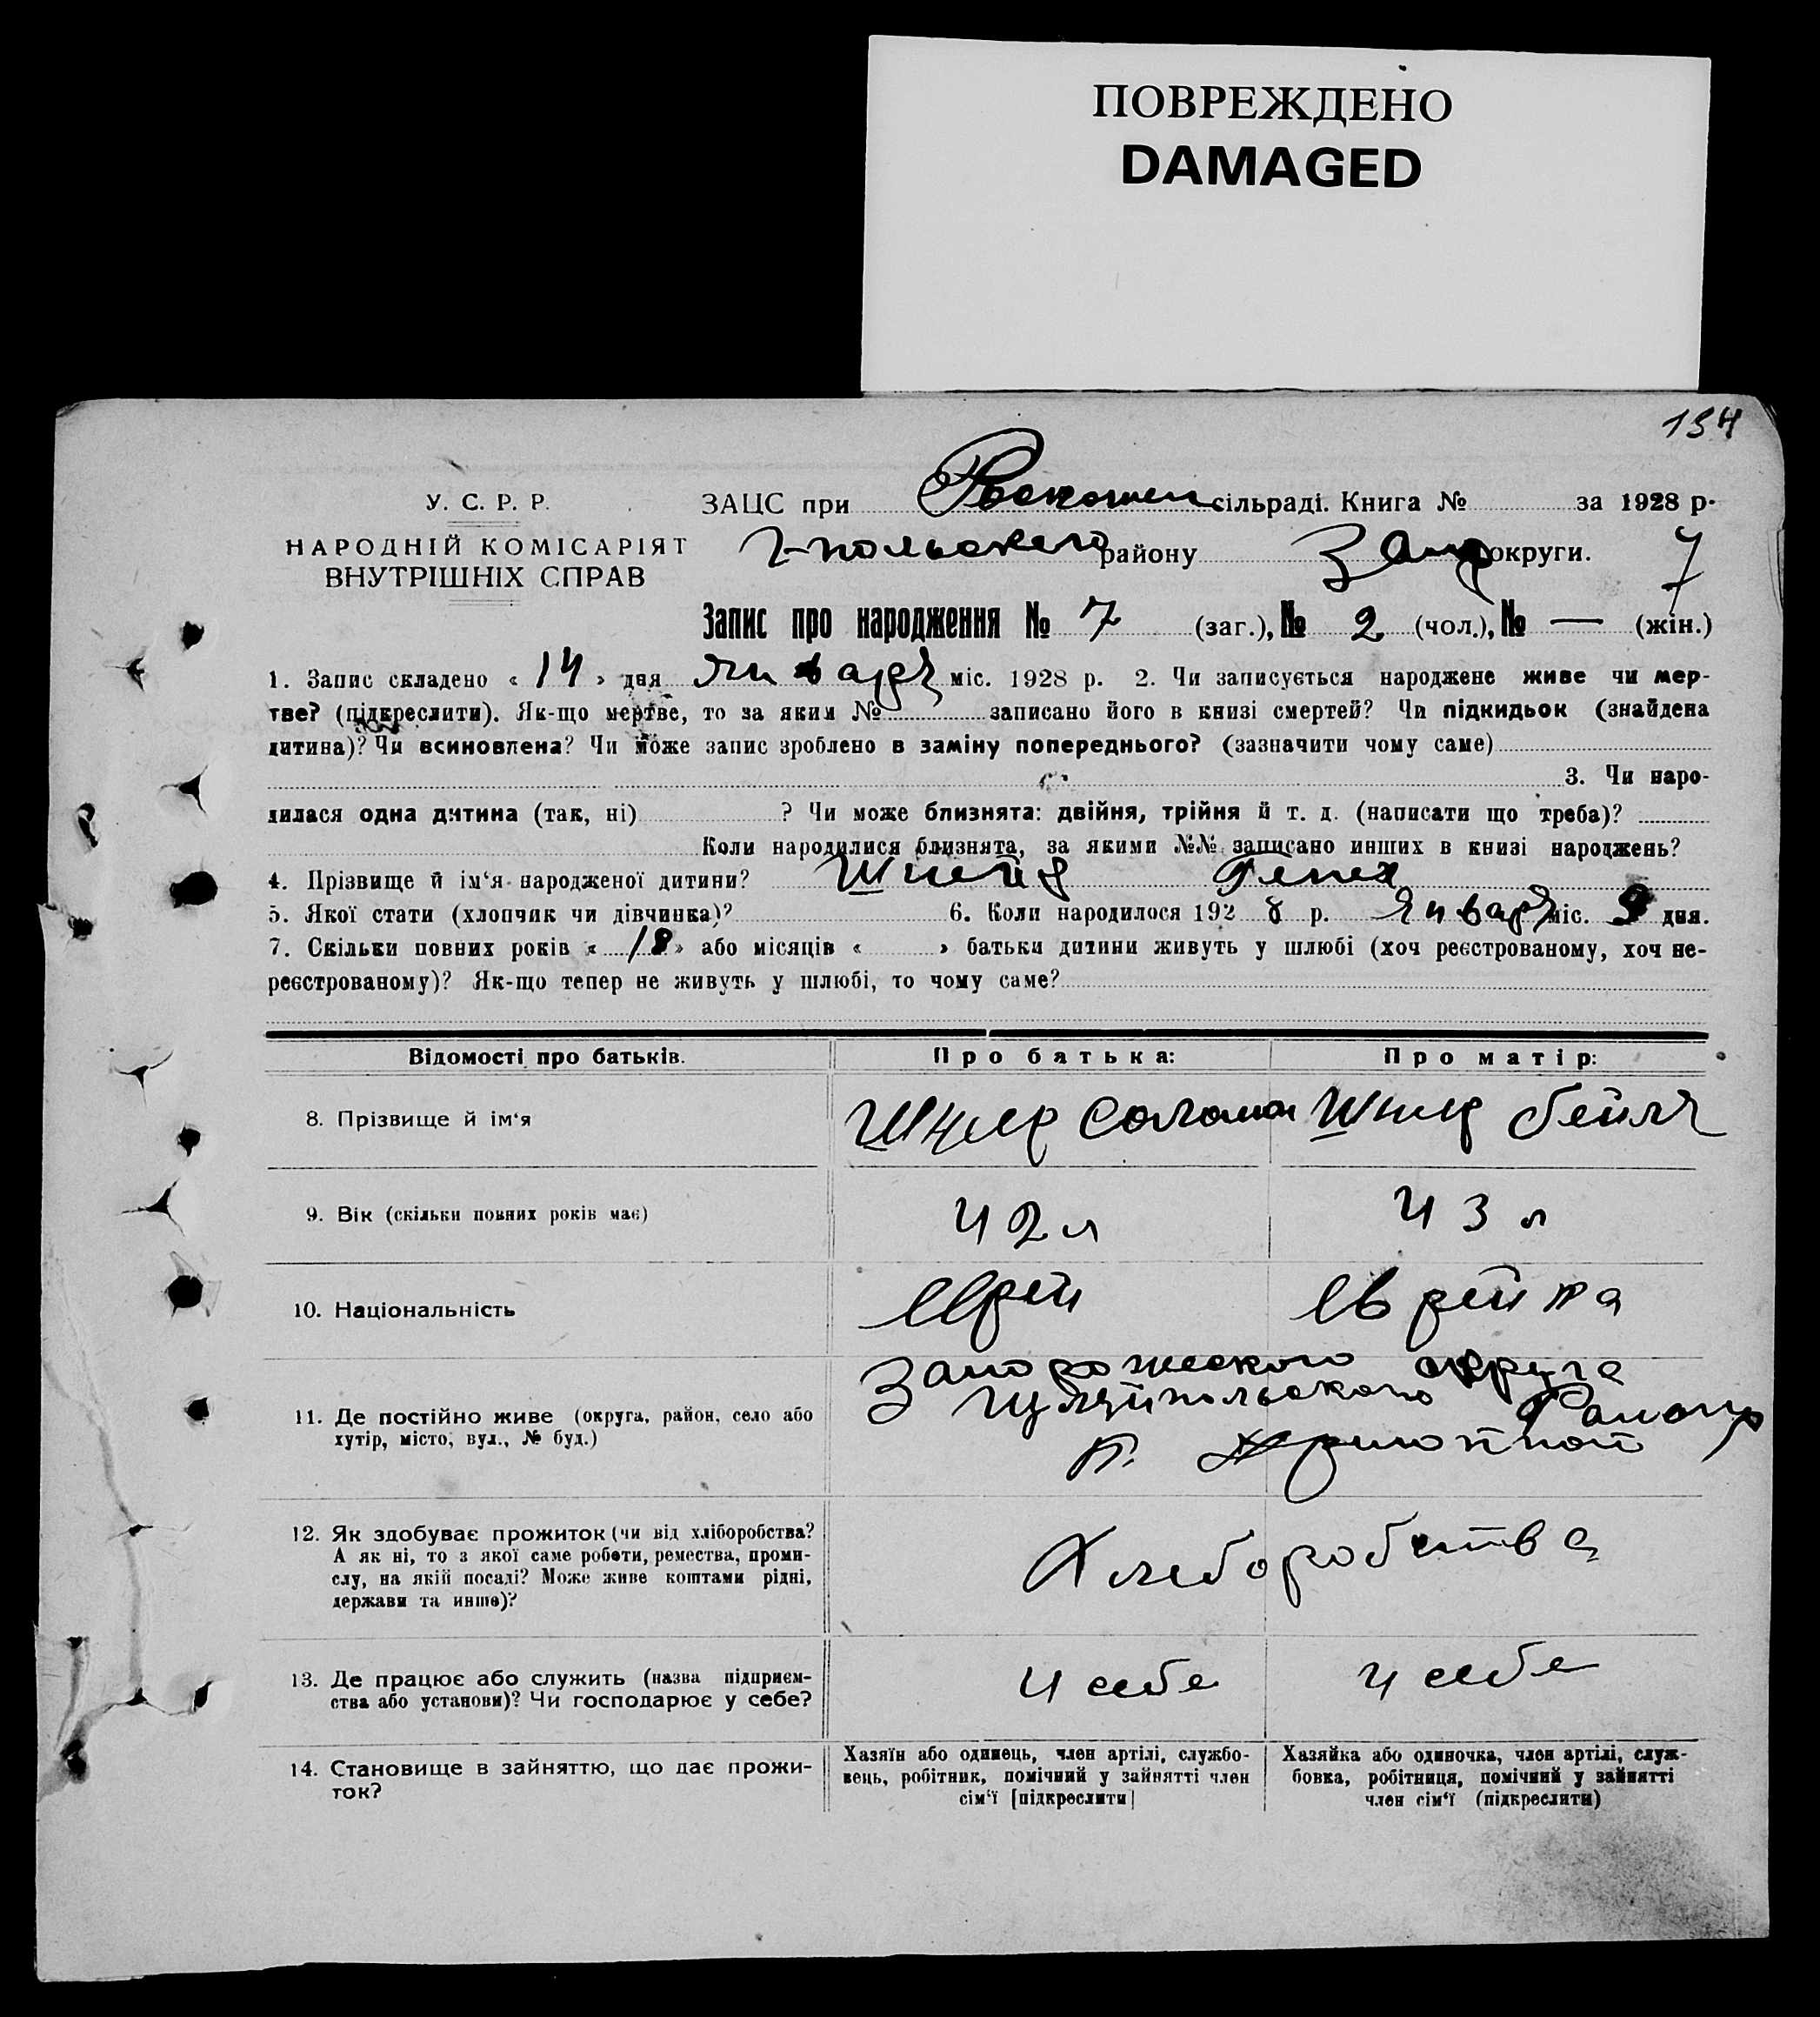 ПОВРЕЖДЕНО
DAMAGED
134
У. С. Р. Р.
НАРОДНІЙ КОМІСАРІЯТ
ВНУТРІШНІХ СПРАВ
ЗАЦС при сільраді. Книга № за 1928 р.
Г-польского району Запор округи. 7
Запис про народження № 7 (заг.), № 2 (чол.), № — (жін.)
1. Запис складено « 14 » дня января міс. 1928 р. 2. Чи записується народжене живе чи мер-
тве? (підкреслити). Як-що мертве, то за яким № записано його в книзі смертей? Чи підкидьок (знайдена
дитина)? Чи всиновлена? Чи може запис зроблено в заміну попереднього? (зазначити чому саме)
3. Чи наро-
дилася одна дитина (так, ні) ? Чи може близнята: двійня, трійня й т. д. (написати що треба)?
Коли народилися близнята, за якими №№ записано инших в книзі народжень?
4. Прізвище й ім‘я народженої дитини? Шнейд
5. Якої стати (хлопчик чи дівчинка)? 6. Коли народилося 192 8 р. Января міс. 9 дня.
7. Скільки повних років « 18 » або місяців « » батьки дитини живуть у шлюбі (хоч реєстрованому, хоч не-
реєстрованому)? Як-що тепер не живуть у шлюбі, то чому саме?
Відомості про батьків. Про батька: Про матір:
8. Прізвище й ім‘я Соломон Бейля
9. Вік (скільки повних років має) 42 л 43 л
10. Національність Еврей Еврейка
11. Де постійно живе (округа, район, село або
хутір, місто, вул., № буд.)
Запорожского округа
Гуляйпольского Району
к. Приютной
12. Як здобуває прожиток (чи від хліборобства?
А як ні, то з якої саме роботи, ремества, проми-
слу, на якій посаді? Може живе коштами рідні,
держави та инше)?
Хлеборобства
13. Де працює або служить (назва підприєм-
ства або установи)? Чи господарює у себе?
У себе У себе
14. Становище в зайняттю, що дає прожи-
ток?
Хазяїн або одинець, член артілі, службо-
вець, робітник, помічний у зайнятті член
сім‘ї [підкреслити]
Хазяйка або одиночка, член артілі, служ-
бовка, робітниця, помічний у зайнятті
член сім‘ї (підкреслити)